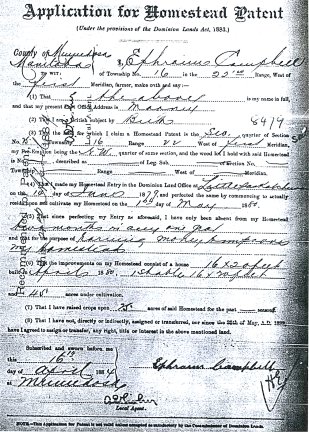 Application for Homestead Patent
(Under the provisions of the Dominion Lands Act, 1883.)
County of Minnedosa
Manitoba I, Ephraim Campbell
TO WIT: of Township No. 16 in the 22nd Range, West of
the first Meridian, farmer, make oath and say:—
(1) That the above is my name in full,
and that my present Post Office Address is
(2) That I am a British subject by Birth 8419
(3) which I claim a Homestead Patent is the quarter of Section
No. Township 16 Range 22 West of first Meridian,
my Pre-Emption being the N.W. quarter of same section, and the wood lot I held with said Homestead
is described as of Leg. Sub. of Section No.
Township Range West of the Meridian,
(4) That I made my Homestead Entry in the Dominion Land Office at
on the of June 1879 and perfected the same by commencing to actually
reside upon and cultivate my Homestead on the 1st day of May 1880.
(5) That since perfecting my Entry as aforesaid, I have only been absent from my Homestead
two months in any one year
and that for the purpose of earning money to improve
my homestead
(6) That the improvements on my Homestead consist of a house 16 x 20 feet
built April 1880, 1 stable 16 x 20 feet
and 45 acres under cultivation.
(7) That I have raised crops upon 25 acres of said Homestead for the past season.
(8) That I have not, directly or indirectly, assigned or transferred, nor since the 25th of May, A.D. 1883
have I agreed to assign or transfer, any right, title or interest in the above mentioned land.
Subscribed and sworn before me
this 16th
day of April 1884
at Minnedosa
Ephraim Campbell
Local Agent.
NOTE.—This Application for Patent is not valid unless accepted as satisfactory by the Commissioner of Dominion Lands.